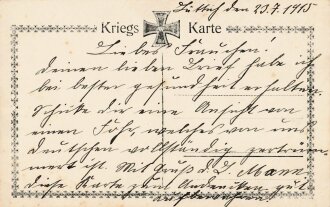 den 23.7.1915
Kriegs Karte
Liebes Frauchen!
Deinen lieben Brief habe ich
bei bester gesundheit erhalten.
Schicke dir eine Ansicht von
einem Fohr, welches von uns
Deutschen vollständig zertrüm-
mert ist. Mit Gruß d. D. Mann
diese Karte zum Andenken gut